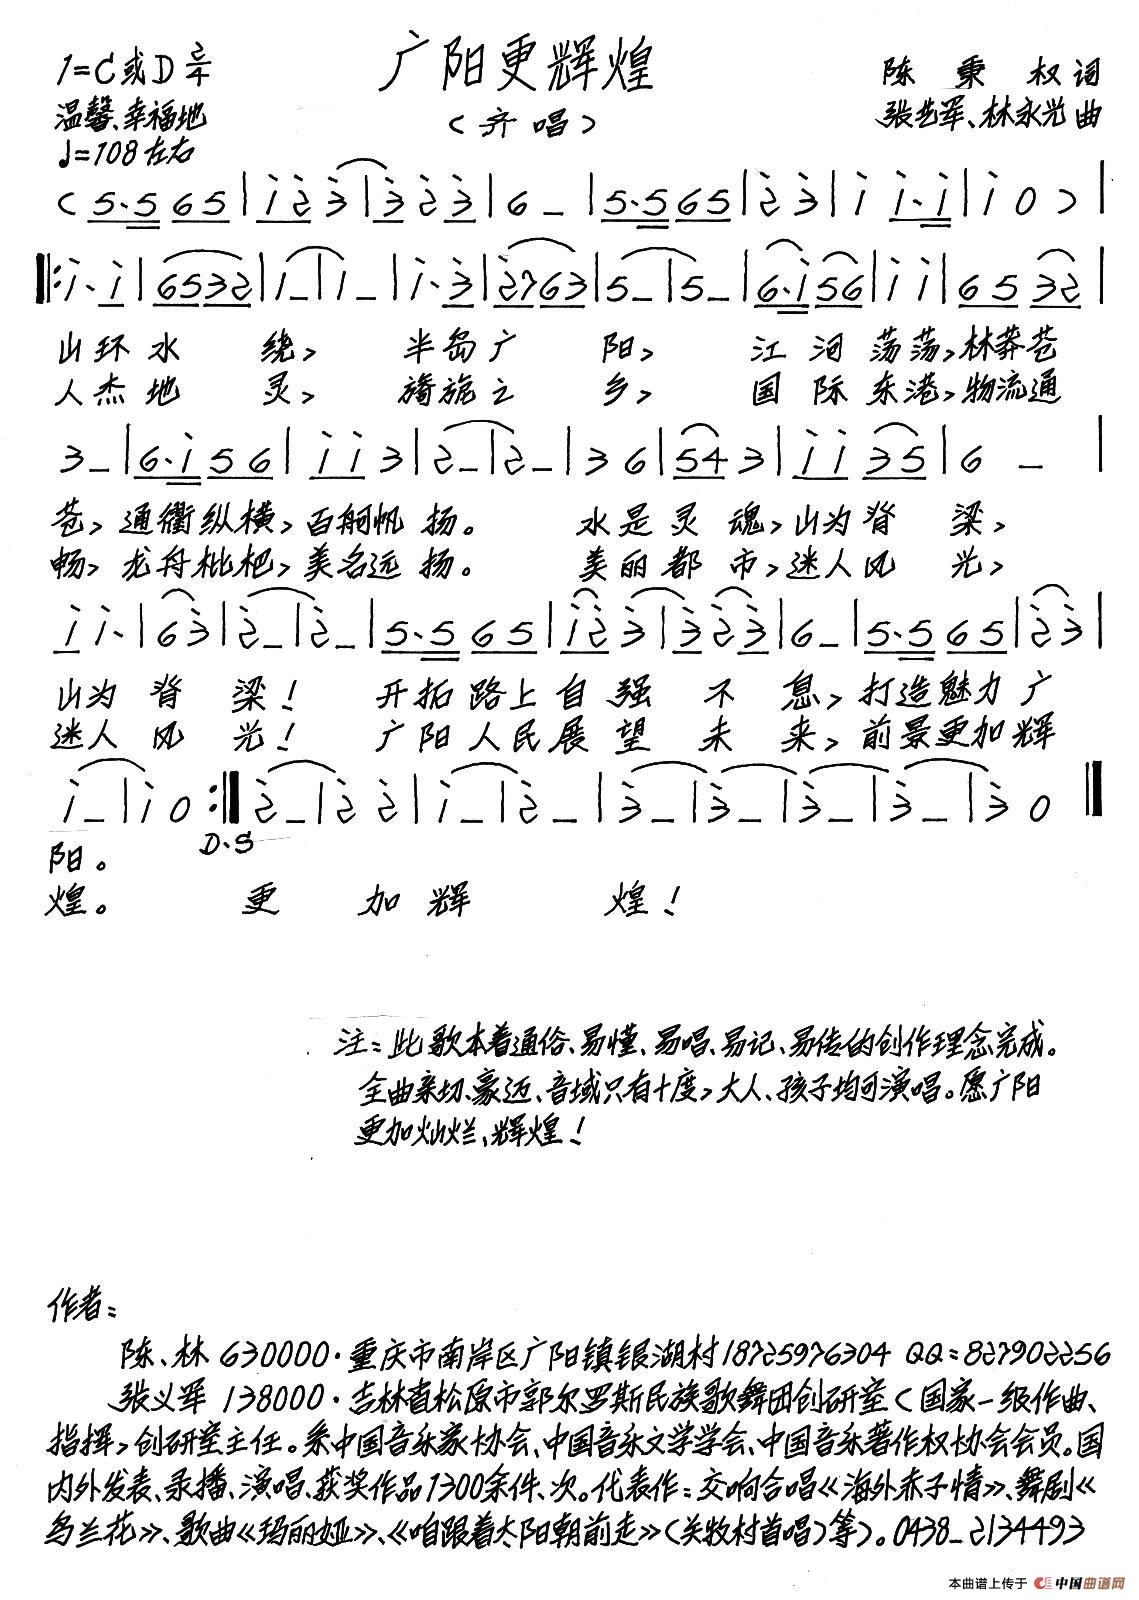 广阳更辉煌
(齐唱)
1=C或D 2/4
温馨、幸福地
♩=108左右
陈秉权词
张艺军、林永光曲
(5·5 65|i 2 3|3 2 3|6 –|5·5 65|2 3|i i·i|i 0)|
‖:i· i|6532|i –|i –|i· 3|2763|5 –|5 –|6·i 56|i i|65 32|
山环水绕,半岛广阳,江河荡荡,林莽苍
人杰地灵,旖旎之乡,国际东港,物流通
3 –|6·i 56|i i 3|2 –|2 –|3 6|54 3|i i 35|6 –|
苍,通衢纵横,百舸帆扬。水是灵魂,山为脊梁,
畅,龙舟枇杷,美名远扬。美丽都市,迷人风光,
i i·|6 3|2 –|2 –|5·5 65|i 2 3|3 2 3|6 –|5·5 65|2 3|
山为脊梁!开拓路上自强不息,打造魅力广
迷人风光!广阳人民展望未来,前景更加辉
i –|i 0:‖2 –|2 2|i –|2 –|3 –|3 –|3 –|3 –|3 0‖
D.S
阳。
煌。更加辉煌!
注:此歌本着通俗、易懂、易唱、易记、易传的创作理念完成。
全曲亲切、豪迈、音域只有十度,大人、孩子均可演唱。愿广阳
更加灿烂、辉煌!
作者:
陈、林 630000·重庆市南岸区广阳镇银湖村18725976304 QQ:827902256
张义军 138000·吉林省松原市郭尔罗斯民族歌舞团创研室(国家一级作曲、
指挥,创研室主任。系中国音乐家协会、中国音乐文学学会、中国音乐著作权协会会员。国
内外发表、录播、演唱、获奖作品1300余件、次。代表作:交响合唱《海外赤子情》、舞剧《
乌兰花》、歌曲《玛丽娅》、《咱跟着太阳朝前走》(关牧村首唱)等)。0438–2134493
本曲谱上传于 中国曲谱网